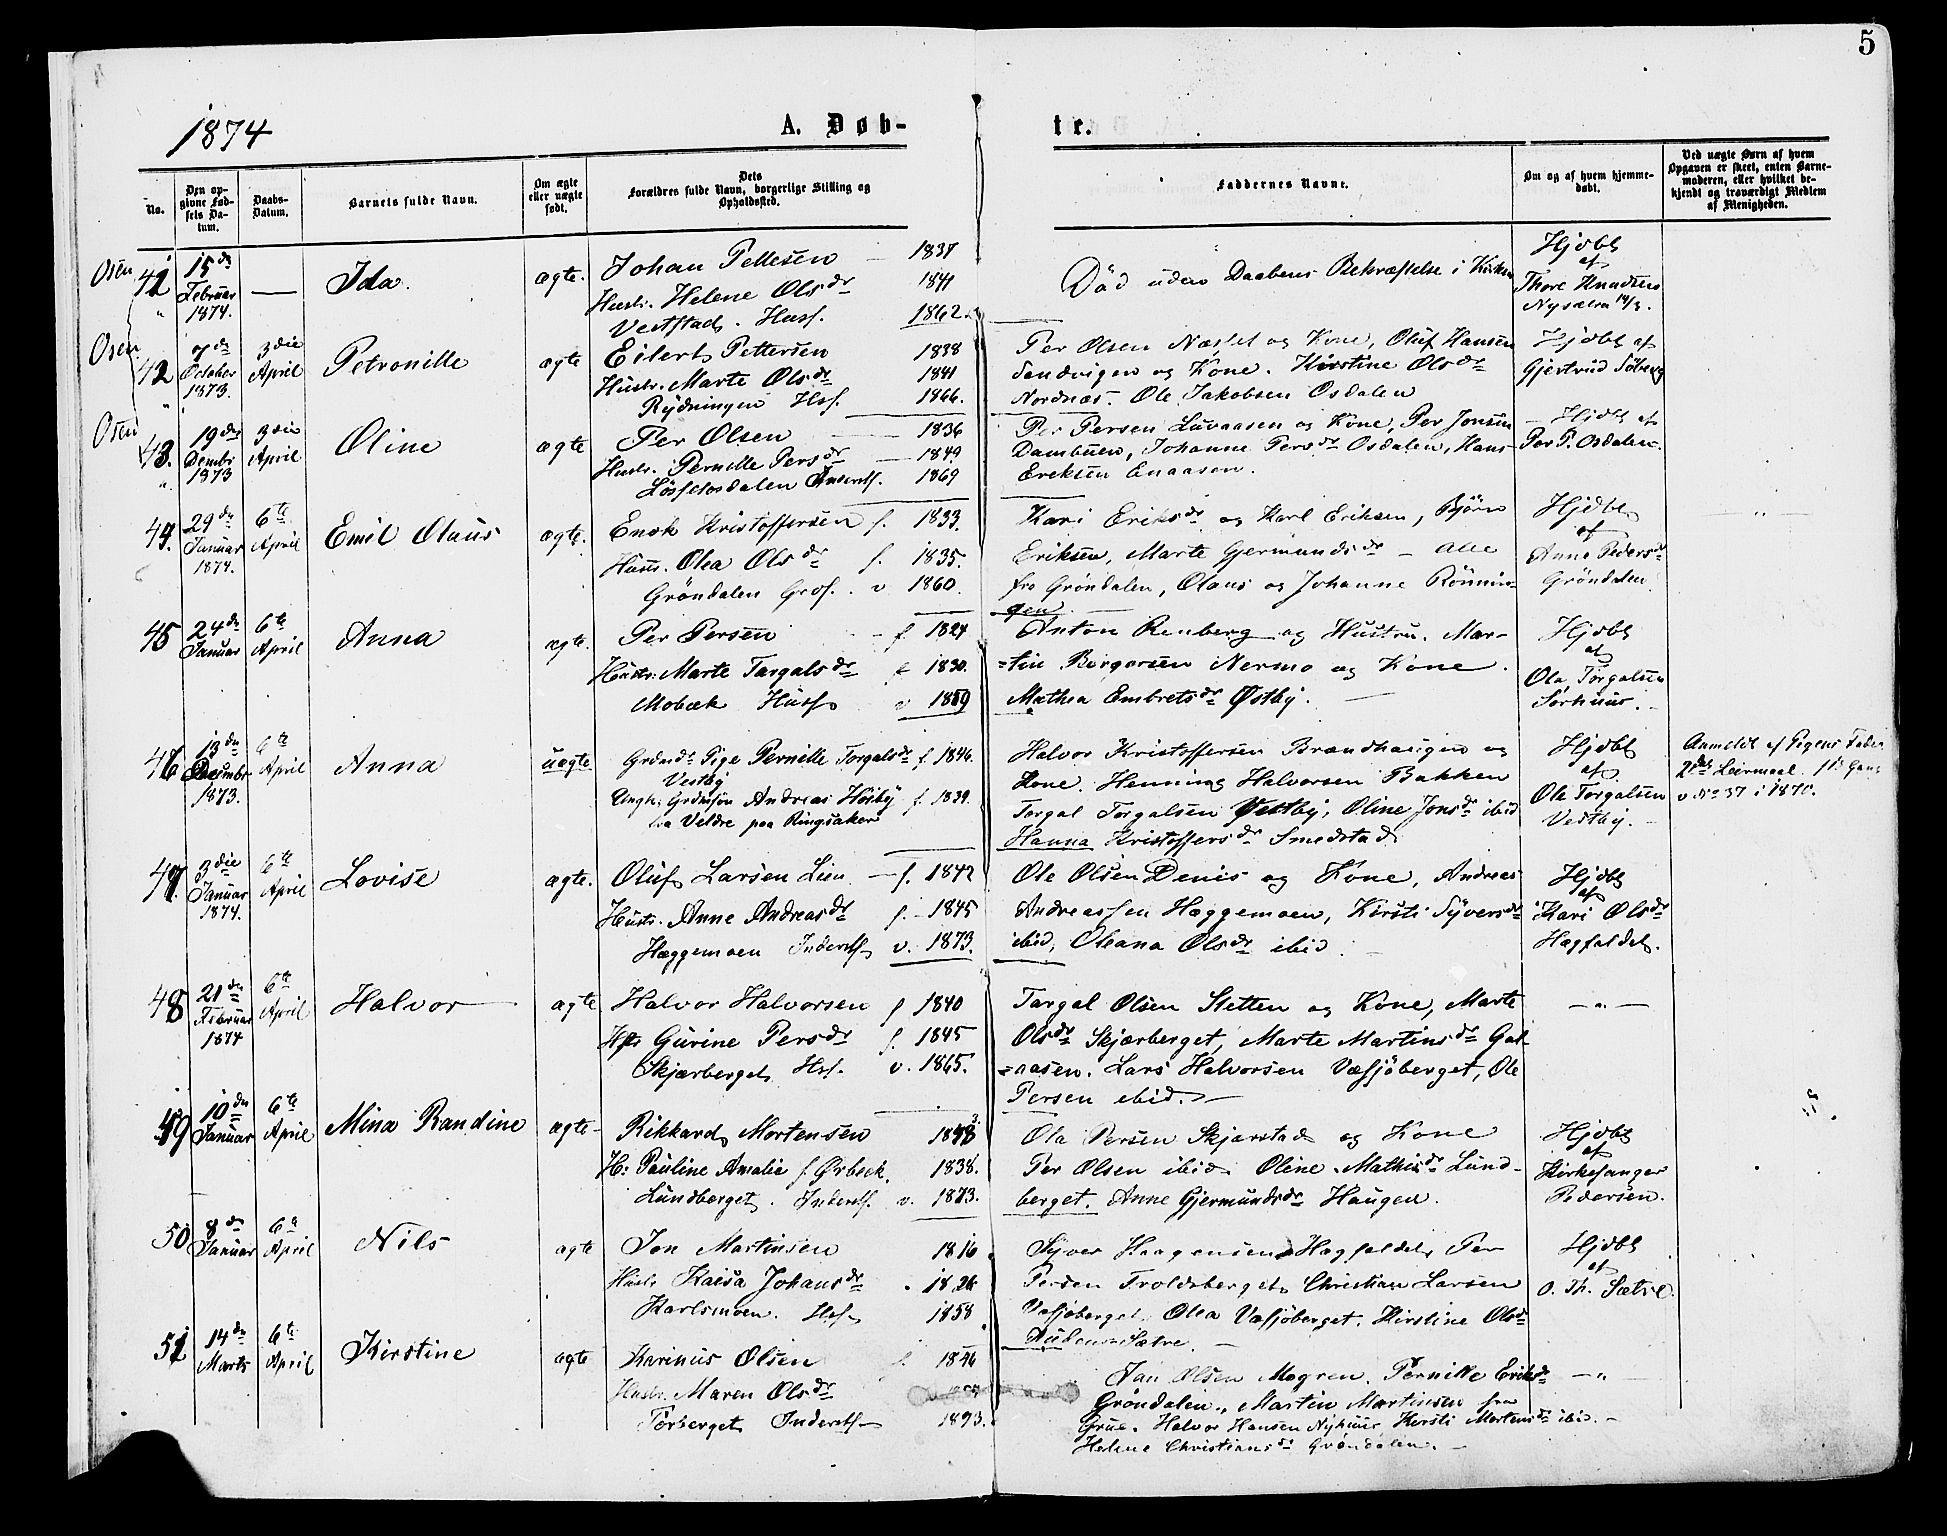 5
1874
A. Døb-
te.
No.
Den op-
givne Fød-
sels Da-
tum.
Daabs-
Datum.
Barnets fulde Navn.
Om ægte
eller uægte
født.
Dets
Forældres fulde Navn, borgerlige Stilling og
Opholdssted.
Faddernes Navne.
Om og af hvem hjemme-
døbt.
Ved uægte Børn af hvem
Opgaven er skeet, enten Barne-
moderen, eller hvilket be-
kjendt og troværdigt Medlem
af Menigheden.
Osen
41
15de
Februar
1874.
—
Ida.
ægte.
Johan Pettesen — 1837
Hustr. Helene Olsdr 1841
Veststad. Husf. 1862.
Død uden Daabens Bekræftelse i Kirken
Hjdbt
af
Thore Knudsen
Nysætra 14/3.
Osen
42
7de
October
1873.
3die
April
Petronille
ægte
Eilert Pettersen 1838
Hustr. Marte Olsdr 1841
Rydningen Hsf. 1866.
Per Olsen Næsset og Kone, Oluf Hansen
Sandvigen og Kone. Kirstine Olsdr
Nordnæs. Ole Jakobsen Osdalen
Hjdbt af
Gjertrud Solberg
Osen
43.
19de
Dembr
1873
3die
April
Oline
ægte
Per Olsen — 1836
Hustr. Pernille Persdr — 1849
Løssetosdalen Inderstf. 1869
Per Persen Luvaasen og Kone, Per Jonsen
Dambuen, Johanne Persdr Osdalen, Hans
Eriksen Enaasen.
Hjdbt af
Per P. Osdalen.
44.
29de
Januar
1874.
6te
April
Emil Olaus
ægte.
Enok Kristoffersen f. 1833.
Hust. Olea Olsdr f. 1835.
Grøndalen Grdf. v 1860.
Kari Eriksdr og Karl Eriksen, Bjørn
Eriksen, Marte Gjermundsdr — Alle
fra Grøndalen, Olaus og Johanne Rønnin-
gen. —
Hjdbt
af
Anne Pedersdr
Grøndalen
— " —
45
24de
Januar
6te
April
Anna
ægte.
Per Persen — f. 1824
Hustr. Marte Targalsdr f 1830.
Mobæk Husf v 1859
Anton Renberg og Hustru. Mar-
=tin Borgersen Nermo og Kone.
Mathea Embretsdr Østby. —
Hjdbt
af
Ola Torgalsen
Sørhuus.
46
13de
Decembr
1873.
6te
April
Anna
uægte
Grdmdr Pige Pernille Torgalsdr f. 1846.
Vestby
Ungk: Grdmsøn Andreas Høiby f. 1839.
fra Veldre paa Ringsaker
Halvor Kristoffersen Brændhaugen og
Kone. Henning Halvorsen Bakken
Torgal Torgalsen Vestby, Oline Jonsdr ibid
Hanna Kristoffersdr Smedstad
Hjdbt
af
Ole Torgalsen
Vestby.
Anmeldt af Pigens Fader
2det Leiermaal. 1te Gang
v No 37 i 1870.
47.
3die
Januar
1874.
6te
April
Lovise
ægte.
Oluf Larsen Lien — f. 1842
Hustr. Anne Andreasdr f. 1845
Hæggemoen Inderstf v. 1873.
Ole Olsen Denis og Kone, Andreas
Andreassen Hæggemoen, Kirsti Syversdr
ibid, Oleana Olsdr ibid. —
Hjdbt
af
Kari Olsdr
Hagfaldet.
48
21de
Februar
1874
6te
April
Halvor
ægte
Halvor Halvorsen f 1840
Hstr Gurine Persdr f. 1845
Skjærberget Hsf. v. 1865.
Targal Olsen Sletten og Kone, Marte
Olsdr Skjærberget, Marte Martinsdr Gal-
=aasen. Lars Halvorsen Væsjøberget, Ole
Persen ibid. —
— " —
49
10de
Januar
6te
April
Mina Randine
ægte
Rikkard Mortensen 1843
H: Pauline Amalie f. Ørbeck. 1838.
Lundberget. Inderstf. v. 1873.
Ola Persen Skjærstad og Kone
Per Olsen ibid. Oline Mathisdr Lund-
berget. Anne Gjermundsdr Haugen.
Hjdbt
af
Kirkesanger
Pedersen.
50
8de
Januar
6te
April
Nils
ægte
Jon Martinsen 1816
Hustr Kaisa Johansdr " 1826
Karlsmoen. Hsf. 1858
Syver Haagensen Hagfaldet, Per
Persen Troldsberget, Christian Larsen
Væsjøberget, Olea Væsjøberget. Kirstine Olsdr
Sætre. —
Hjdbt
af
O. Th. Sætre.
51
14de
Marts
6te
April
Kirstine
ægte
Karinus Olsen f. 1846
Hustr. Maren Olsdr
Torberget Inderstf 1873.
Jan Olsen Mogren. Pernille Eriksdr
Grøndalen., Martin Martinsen fra
Grue. Halvor Hansen Nyhuus, Kirsti Mortensdr ibid. —
Helene Christiansdr Grøndalen. —
— " —